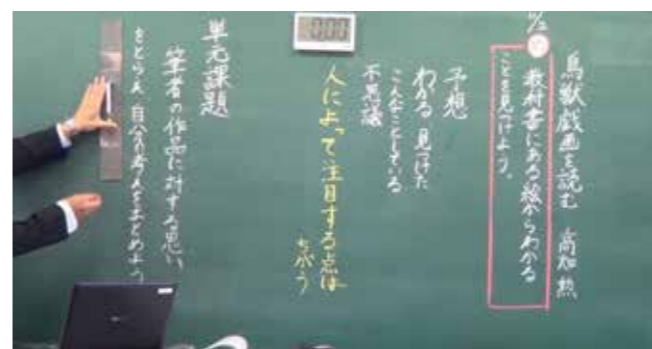 鳥獣戯画を読む 高畑勲
め
教材書にある絵からわかる
ことを見つけよう。
予想
わかる 見つけた
こんなことしている
不思議
人によって注目する点は
ちがう
0:00
単元課題
筆者の作品に対する思い
をとらえ、自分の考えをまとめよう